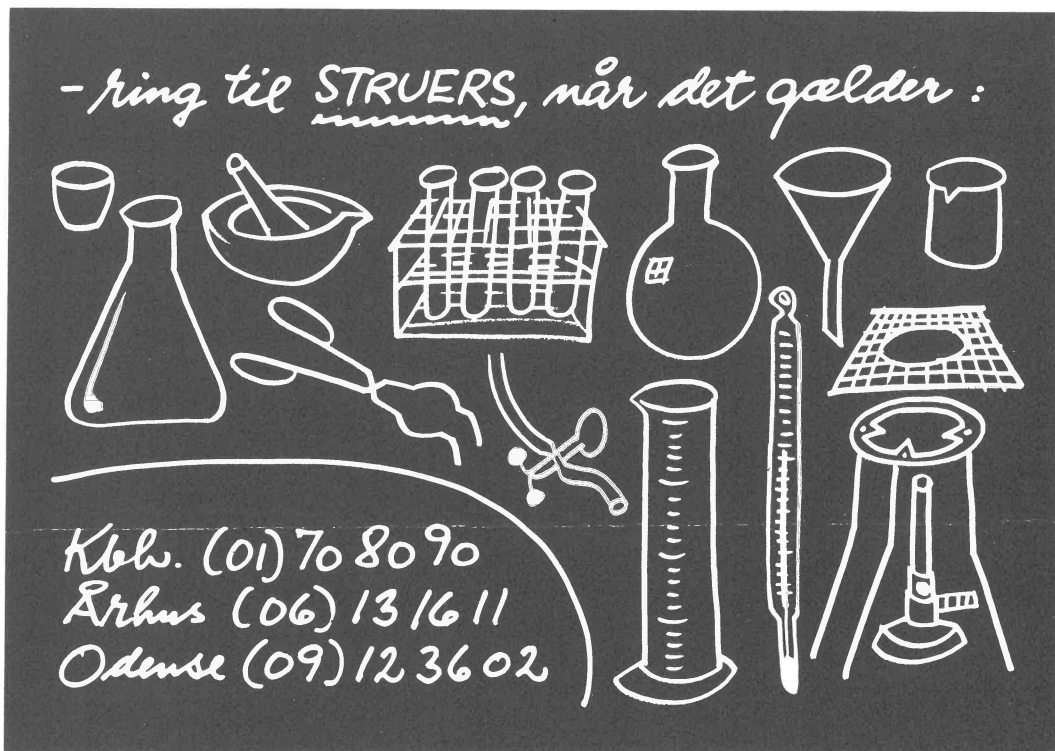 - ring til STRUERS, når det gælder :
Kbh. (01) 70 80 90
Århus (06) 13 16 11
Odense (09) 12 36 02